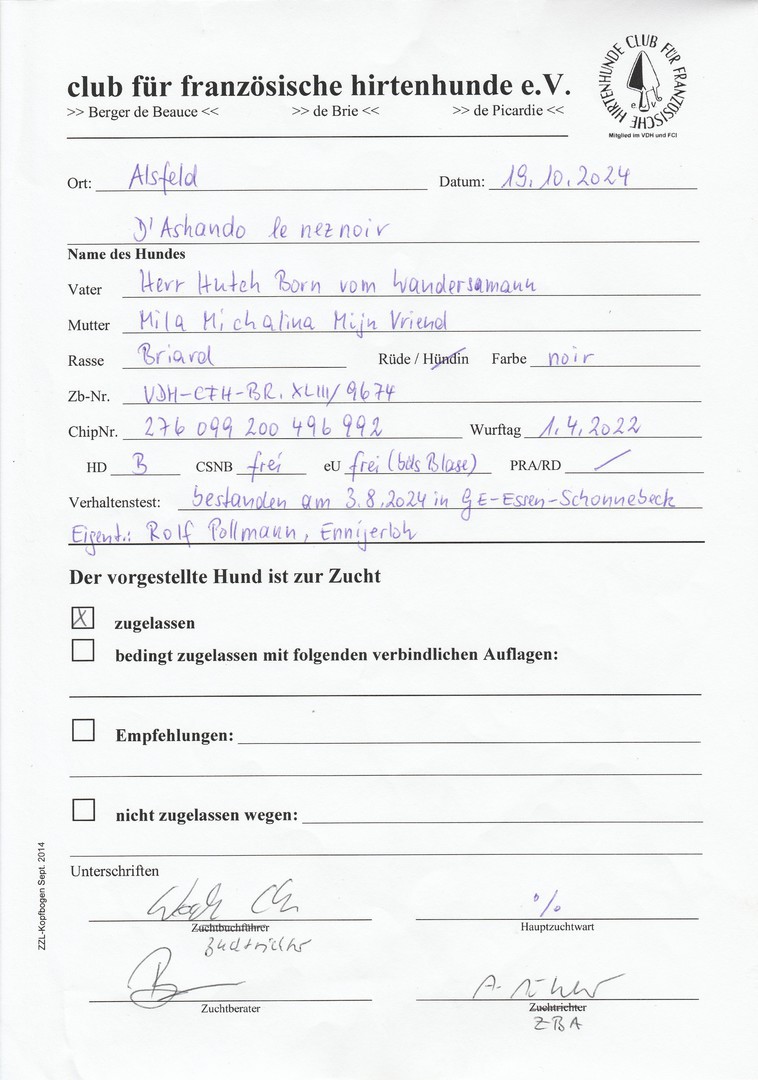 club für französische hirtenhunde e.V.
>> Berger de Beauce << >> de Brie << >> de Picardie <<
HIRTENHUNDE CLUB FÜR FRANZÖSISCHE
e.V.
Mitglied im VDH und FCI
Ort: Alsfeld Datum: 19.10.2024
D'Ashando le nez noir
Name des Hundes
Vater Herr Hutch Born vom Wandersamann
Mutter Mila Michalina Mijn Vriend
Rasse Briard Rüde / Hündin Farbe noir
Zb-Nr. VDH-CFH-BR. XLIII/9674
ChipNr. 276 099 200 496 992 Wurftag 1.4.2022
HD B CSNB frei eU frei (bds Blase) PRA/RD /
Verhaltenstest: bestanden am 3.8.2024 in GE-Essen-Schonnebeck
Eigent.: Rolf Pollmann, Ennigerloh
Der vorgestellte Hund ist zur Zucht
X zugelassen
bedingt zugelassen mit folgenden verbindlichen Auflagen:
Empfehlungen:
nicht zugelassen wegen:
Unterschriften
%
Zuchtbuchführer Hauptzuchtwart
Zuchtrichter
Zuchtberater Zuchtrichter
ZBA
ZZL-Kopfbogen Sept. 2014